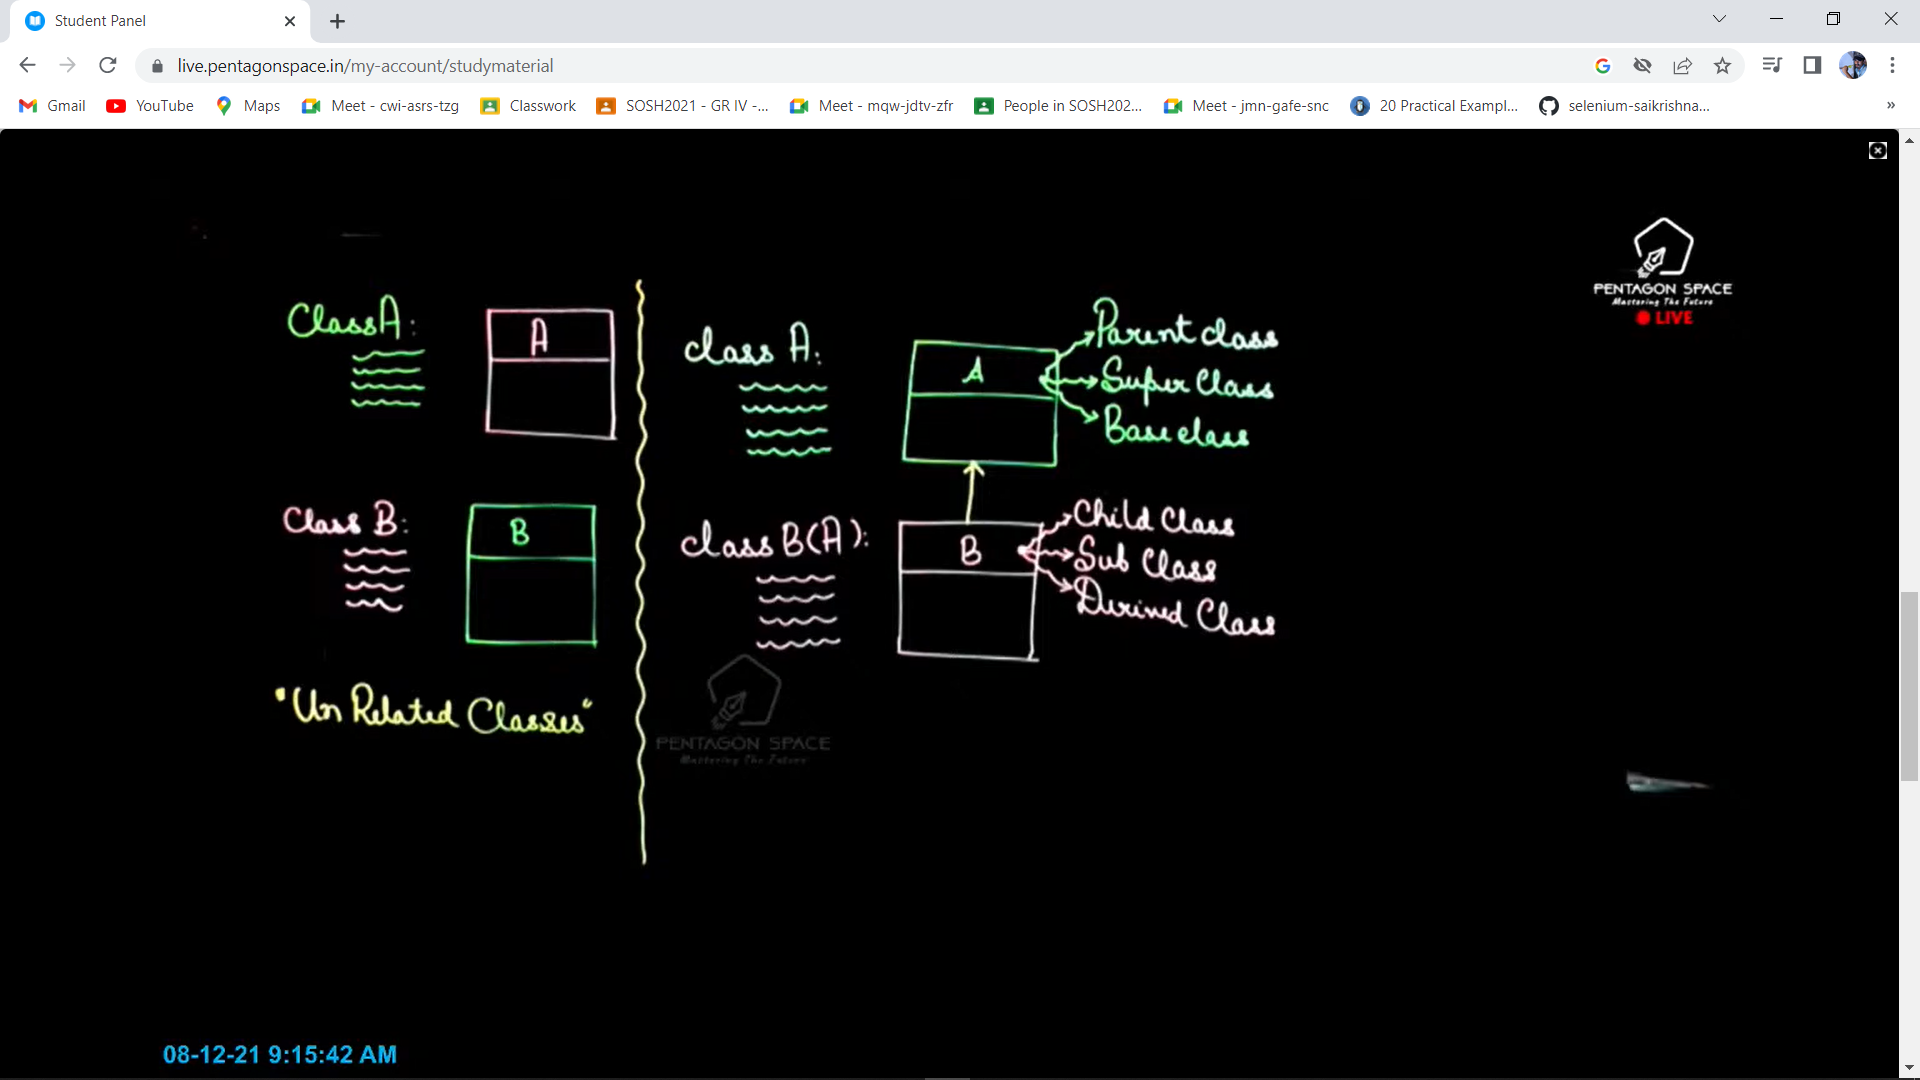 Student Panel
live.pentagonspace.in/my-account/studymaterial
Gmail YouTube Maps Meet - cwi-asrs-tzg Classwork SOSH2021 - GR IV -... Meet - mqw-jdtv-zfr People in SOSH202... Meet - jmn-gafe-snc 20 Practical Exampl... selenium-saikrishna... »
PENTAGON SPACE
Mastering The Future
LIVE
Class A:
A
Class B:
B
"Un Related Classes"
class A:
A
Parent class
Super Class
Base class
class B(A):
B
Child Class
Sub Class
Derived Class
PENTAGON SPACE
Mastering The Future
08-12-21 9:15:42 AM